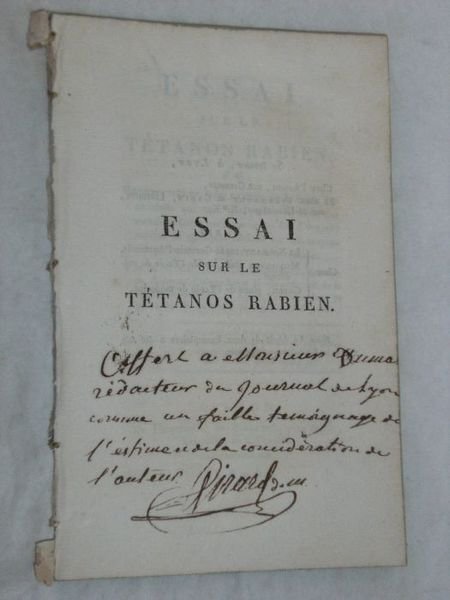 ESSAI
SUR LE
TÉTANOS RABIEN.
Offert a Monsieur Dumas
rédacteur du Journal de Lyon
comme un faible témoignage de
l'éstime & de la considération de
l'auteur Girard d. m.